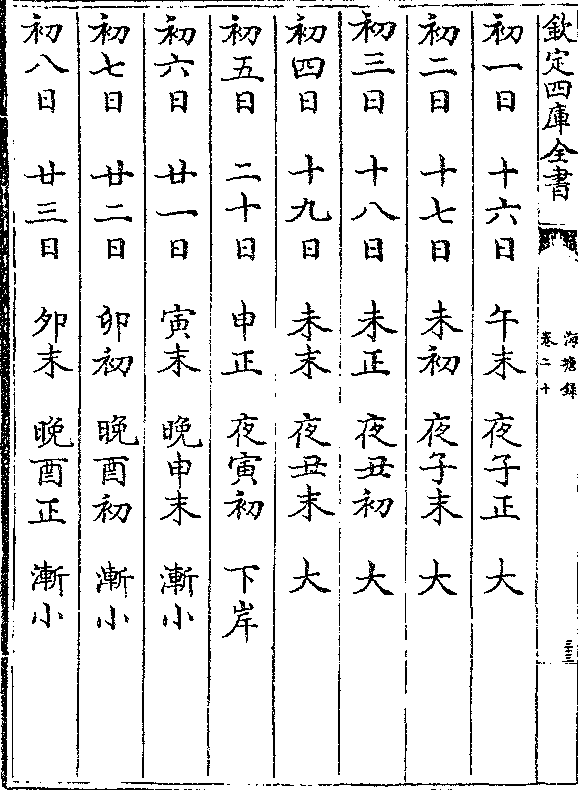 欽定四庫全書
海塘錄
卷二十
初一日 十六日 午末 夜子正 大
初二日 十七日 未初 夜子末 大
初三日 十八日 未正 夜丑初 大
初四日 十九日 未末 夜丑末 大
初五日 二十日 申正 夜寅初 下岸
初六日 廿一日 寅末 晚申末 漸小
初七日 廿二日 卯初 晚酉初 漸小
初八日 廿三日 卯末 晚酉正 漸小